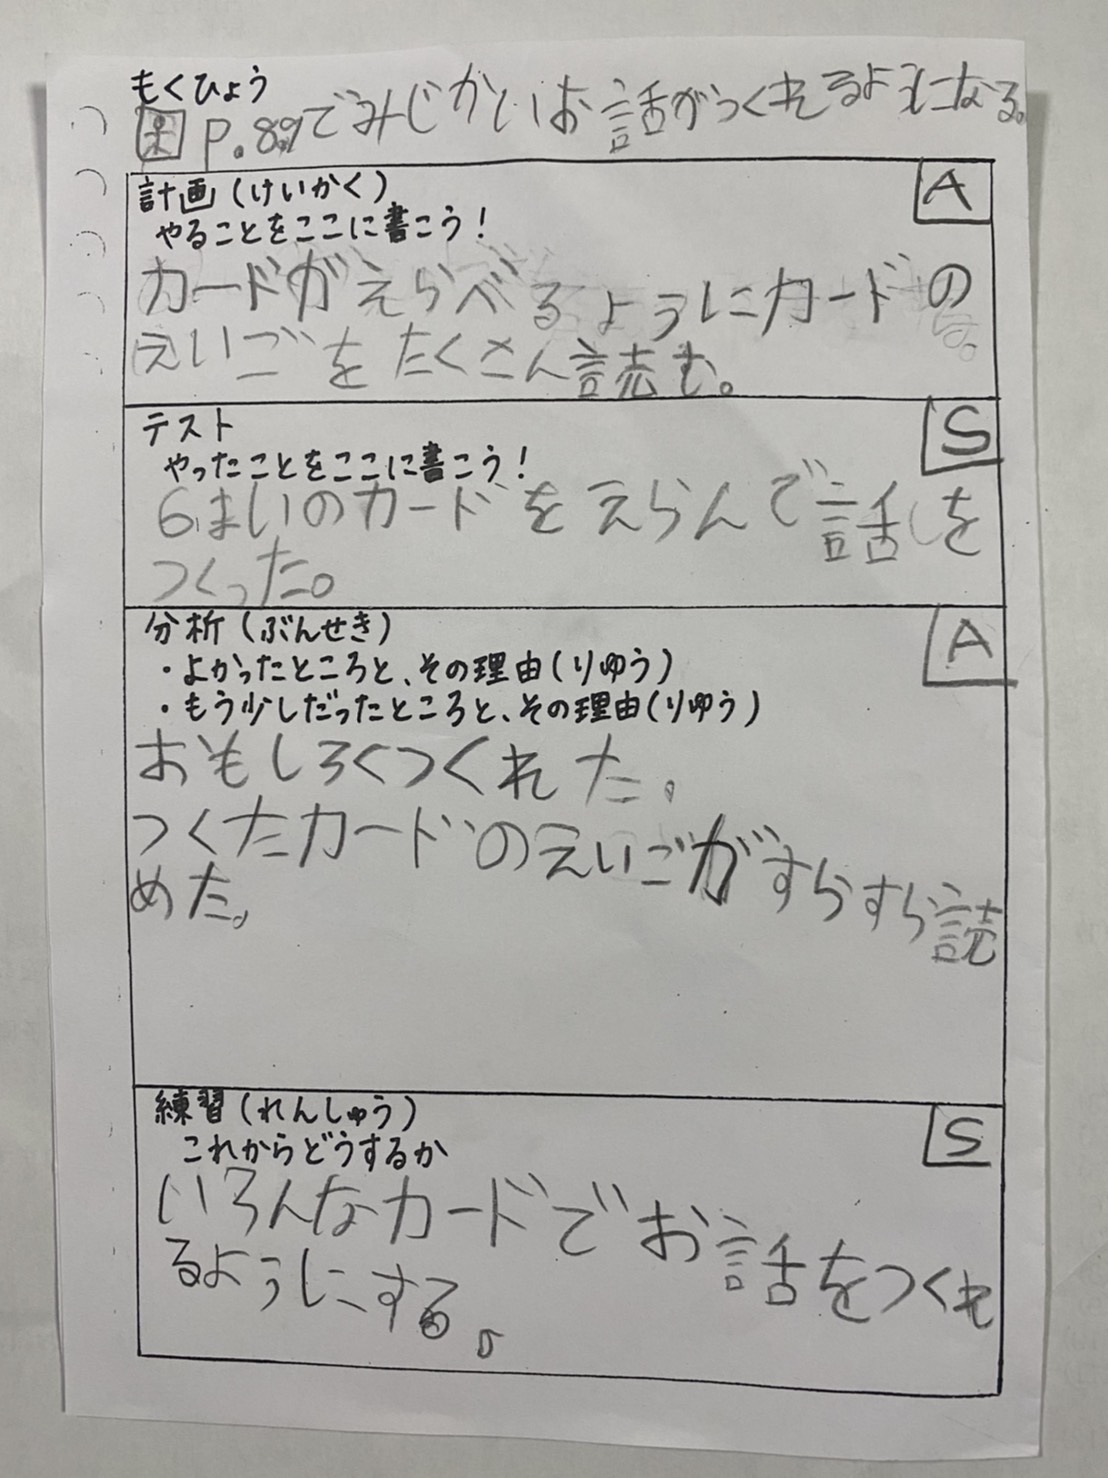 もくひょう
p.8.9でみじかいお話がつくれるようになる。
計画(けいかく) A
やることをここに書こう!
カードがえらべるようにカードの
えいごをたくさん読む。
テスト S
やったことをここに書こう!
6まいのカードをえらんで話しを
つくった。
分析(ぶんせき) A
・よかったところと、その理由(りゆう)
・もう少しだったところと、その理由(りゆう)
おもしろくつくれた。
つくたカードのえいごがすらすら読
めた。
練習(れんしゅう) S
これからどうするか
いろんなカードでお話をつくれ
るようにする。